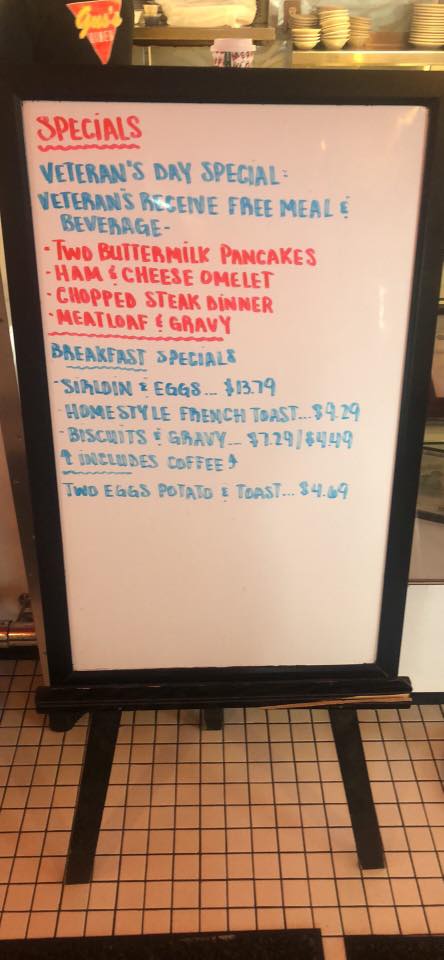 Gus's
DINER
SPECIALS
VETERAN'S DAY SPECIAL:
VETERAN'S RECEIVE FREE MEAL &
BEVERAGE-
·TWO BUTTERMILK PANCAKES
·HAM & CHEESE OMELET
·CHOPPED STEAK DINNER
·MEATLOAF & GRAVY
BREAKFAST SPECIALS
·SIRLOIN & EGGS... $13.79
·HOMESTYLE FRENCH TOAST...$9.29
·BISCUITS & GRAVY... $7.29/$4.49
↑ INCLUDES COFFEE↑
TWO EGGS POTATO & TOAST... $4.69